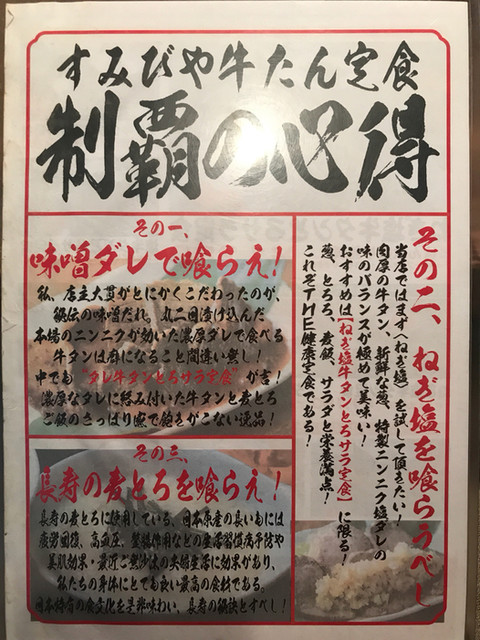 すみびや牛たん定食
制覇の心得
その一、
味噌ダレで喰らえ！
私、店主大貫がとにかくこだわったのが、
秘伝の味噌だれ。丸二回漬け込んだ
本場のニンニクが効いた濃厚ダレで食べる
牛タンは癖になること間違い無し！
中でも“タレ牛タンとろサラ定食”が吉！
濃厚なタレに絡み付いた牛タンと麦とろ
ご飯のさっぱり感で飽きがこない逸品！
その二、ねぎ塩を喰らうべし
当店ではまず〈ねぎ塩〉を試して頂きたい！
肉厚の牛タン、新鮮な葱、特製ニンニク塩ダレの
味のバランスが極めて美味い！
おすすめは【ねぎ塩牛タンとろサラ定食】に限る！
葱、とろろ、麦飯、サラダと栄養満点！
これぞTHE健康定食である！
その三、
長寿の麦とろを喰らえ！
長寿の麦とろに使用している、日本原産の長いもには
疲労回復、高血圧、整腸作用などの生活習慣病予防や
美肌効果・最近ご無沙汰の夫婦生活に効果があり、
私たちの身体にとても良い最高の食材である。
日本特有の食文化を是非味わい、長寿の秘訣とすべし！